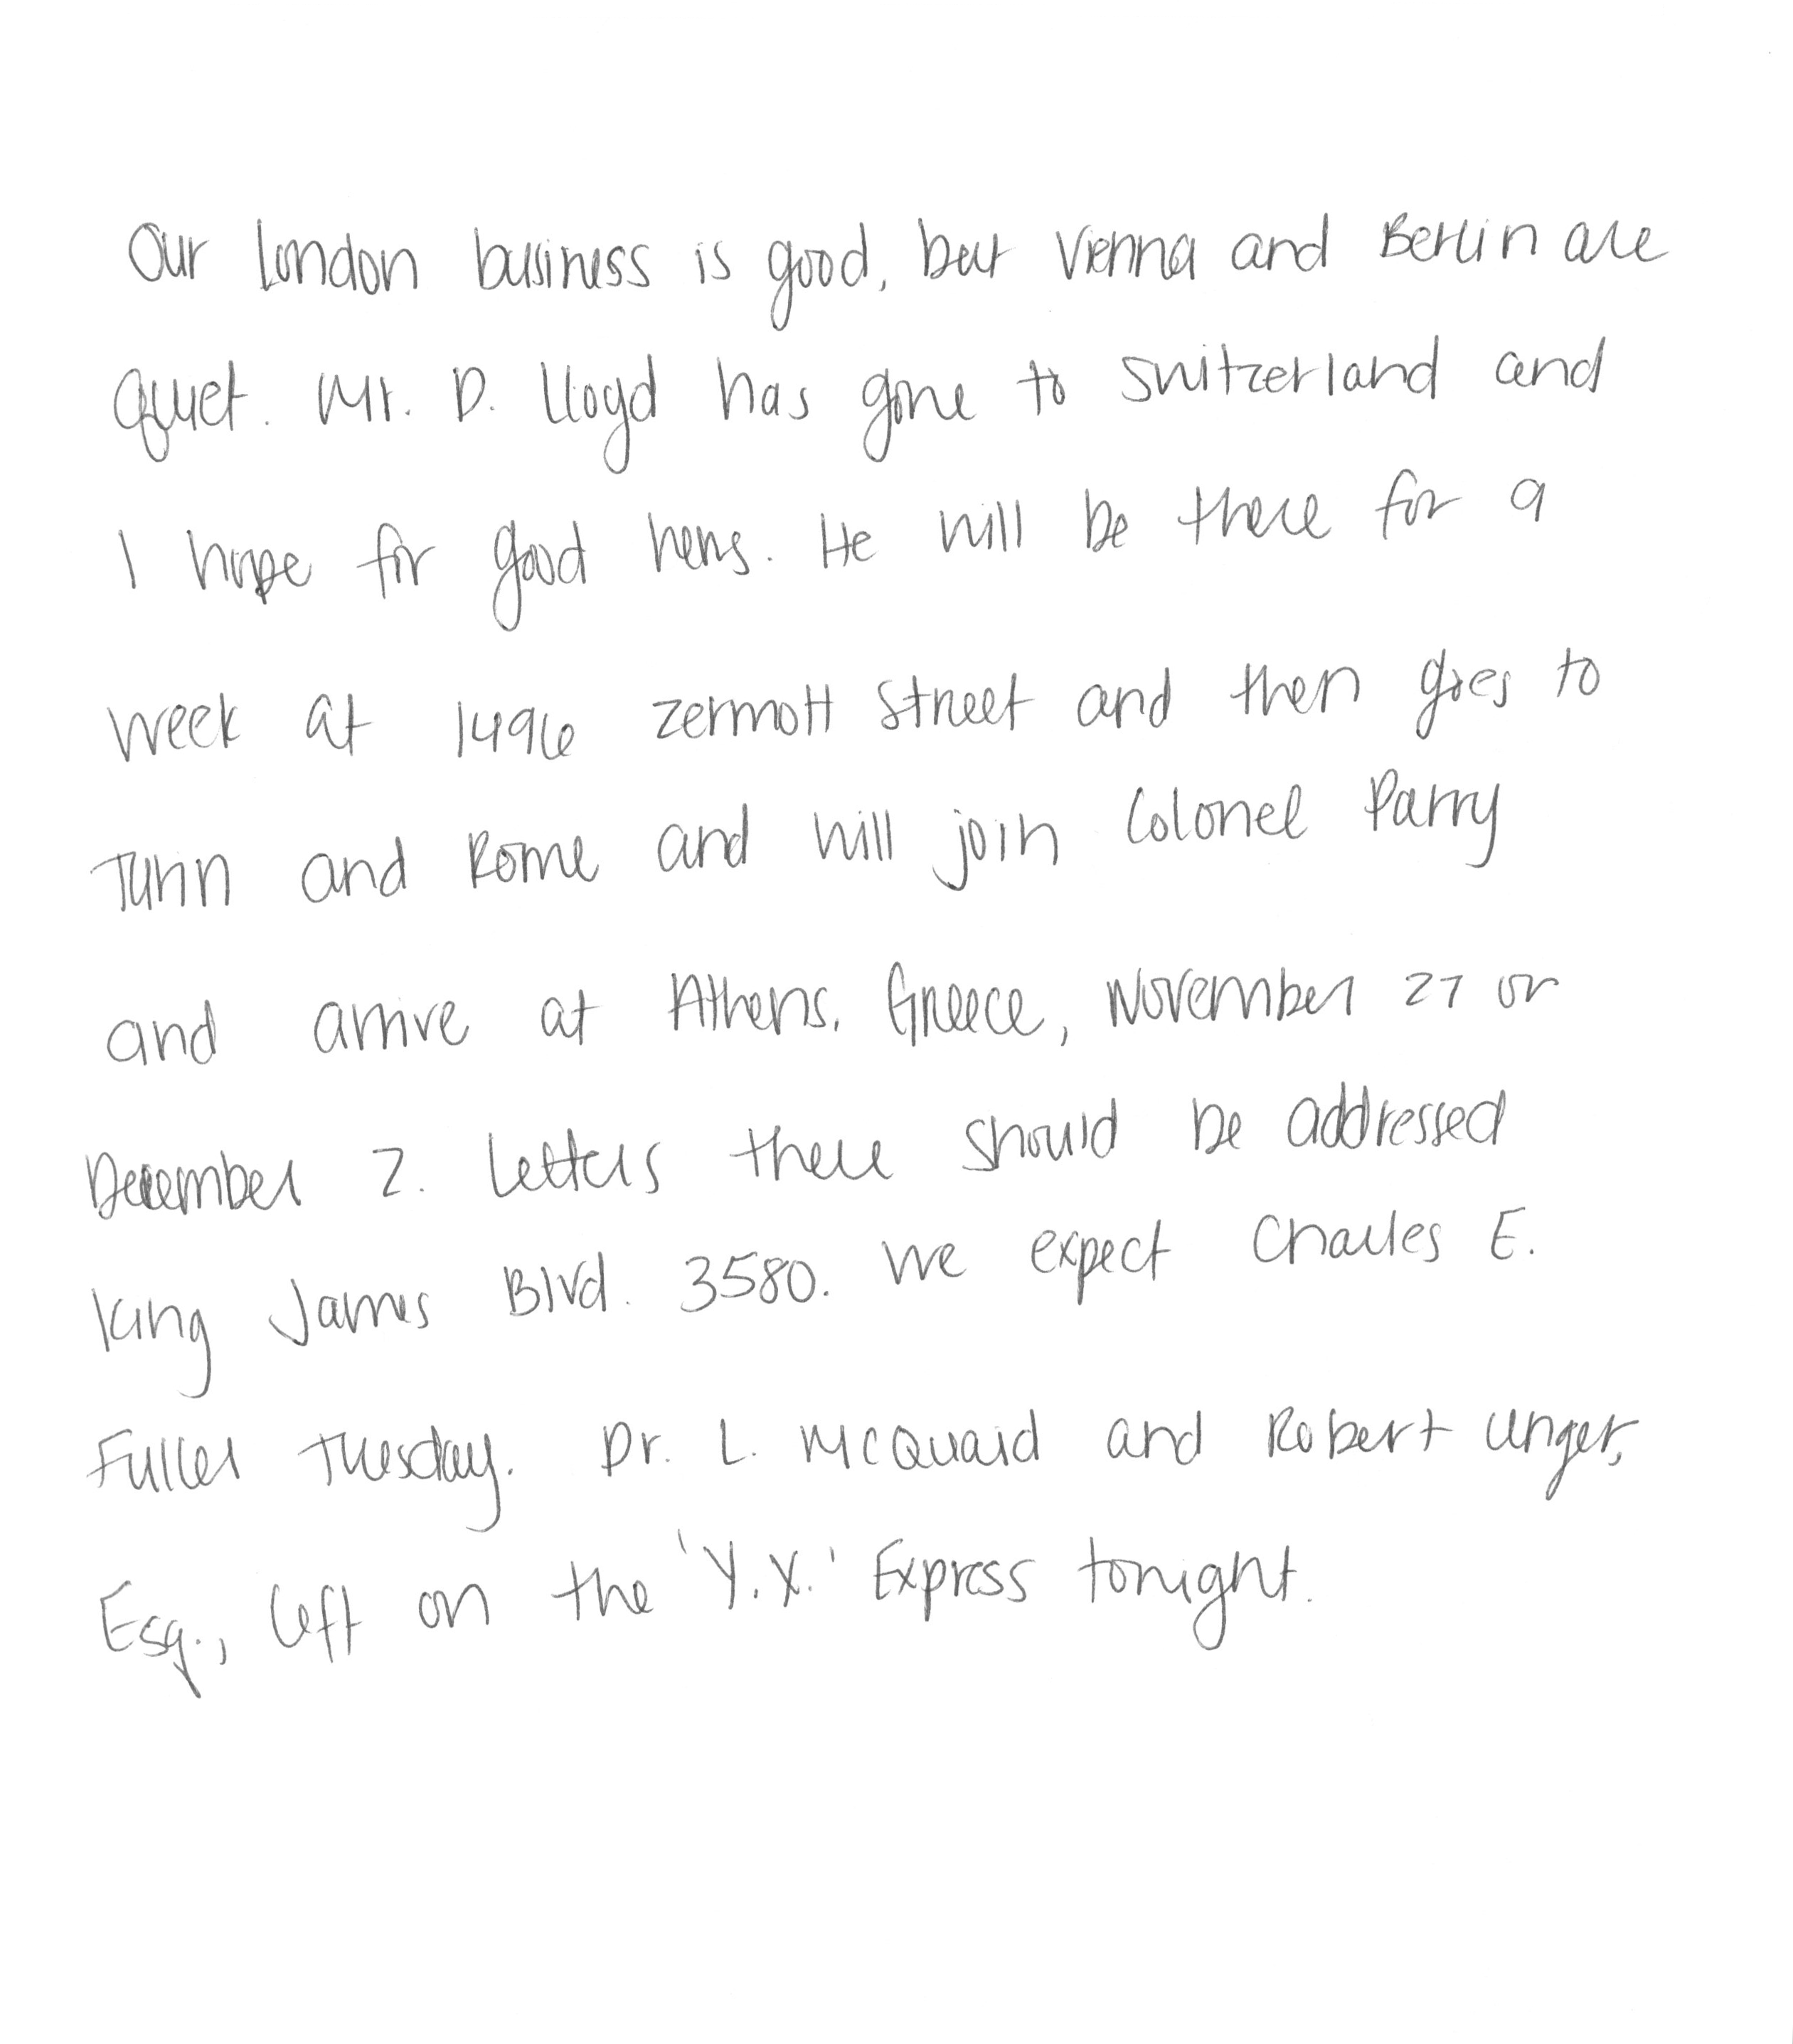 Our London business is good, but Vienna and Berlin are
quiet. Mr. D. Lloyd has gone to Switzerland and
I hope for good news. He will be there for a
week at 1496 Zermott Street and then goes to
Turin and Rome and will join Colonel Parry
and arrive at Athens, Greece, November 27 or
December 2. Letters there should be addressed
King James Blvd. 3580. We expect Charles E.
Fuller Tuesday. Dr. L. McQuaid and Robert Unger,
Esq., left on the 'Y.X.' Express tonight.